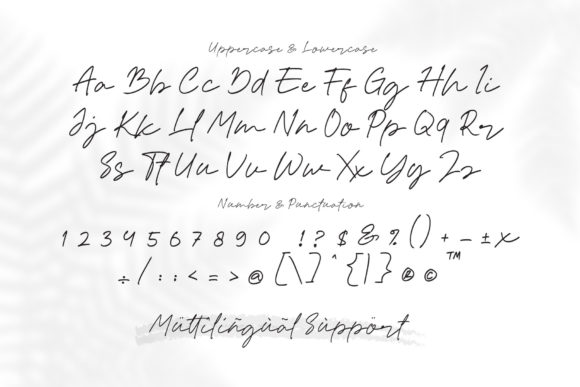 Uppercase & Lowercase
Aa Bb Cc Dd Ee Ff Gg Hh Ii
Jj Kk Ll Mm Nn Oo Pp Qq Rr
Ss Tt Uu Vv Ww Xx Yy Zz
Number & Punctuation
1 2 3 4 5 6 7 8 9 0 ! ? $ & % ( ) + - ± x
÷ / : : < = > @ [ \ ] ^ { | } ® © ™
Müttilïñgùàl Sùppört